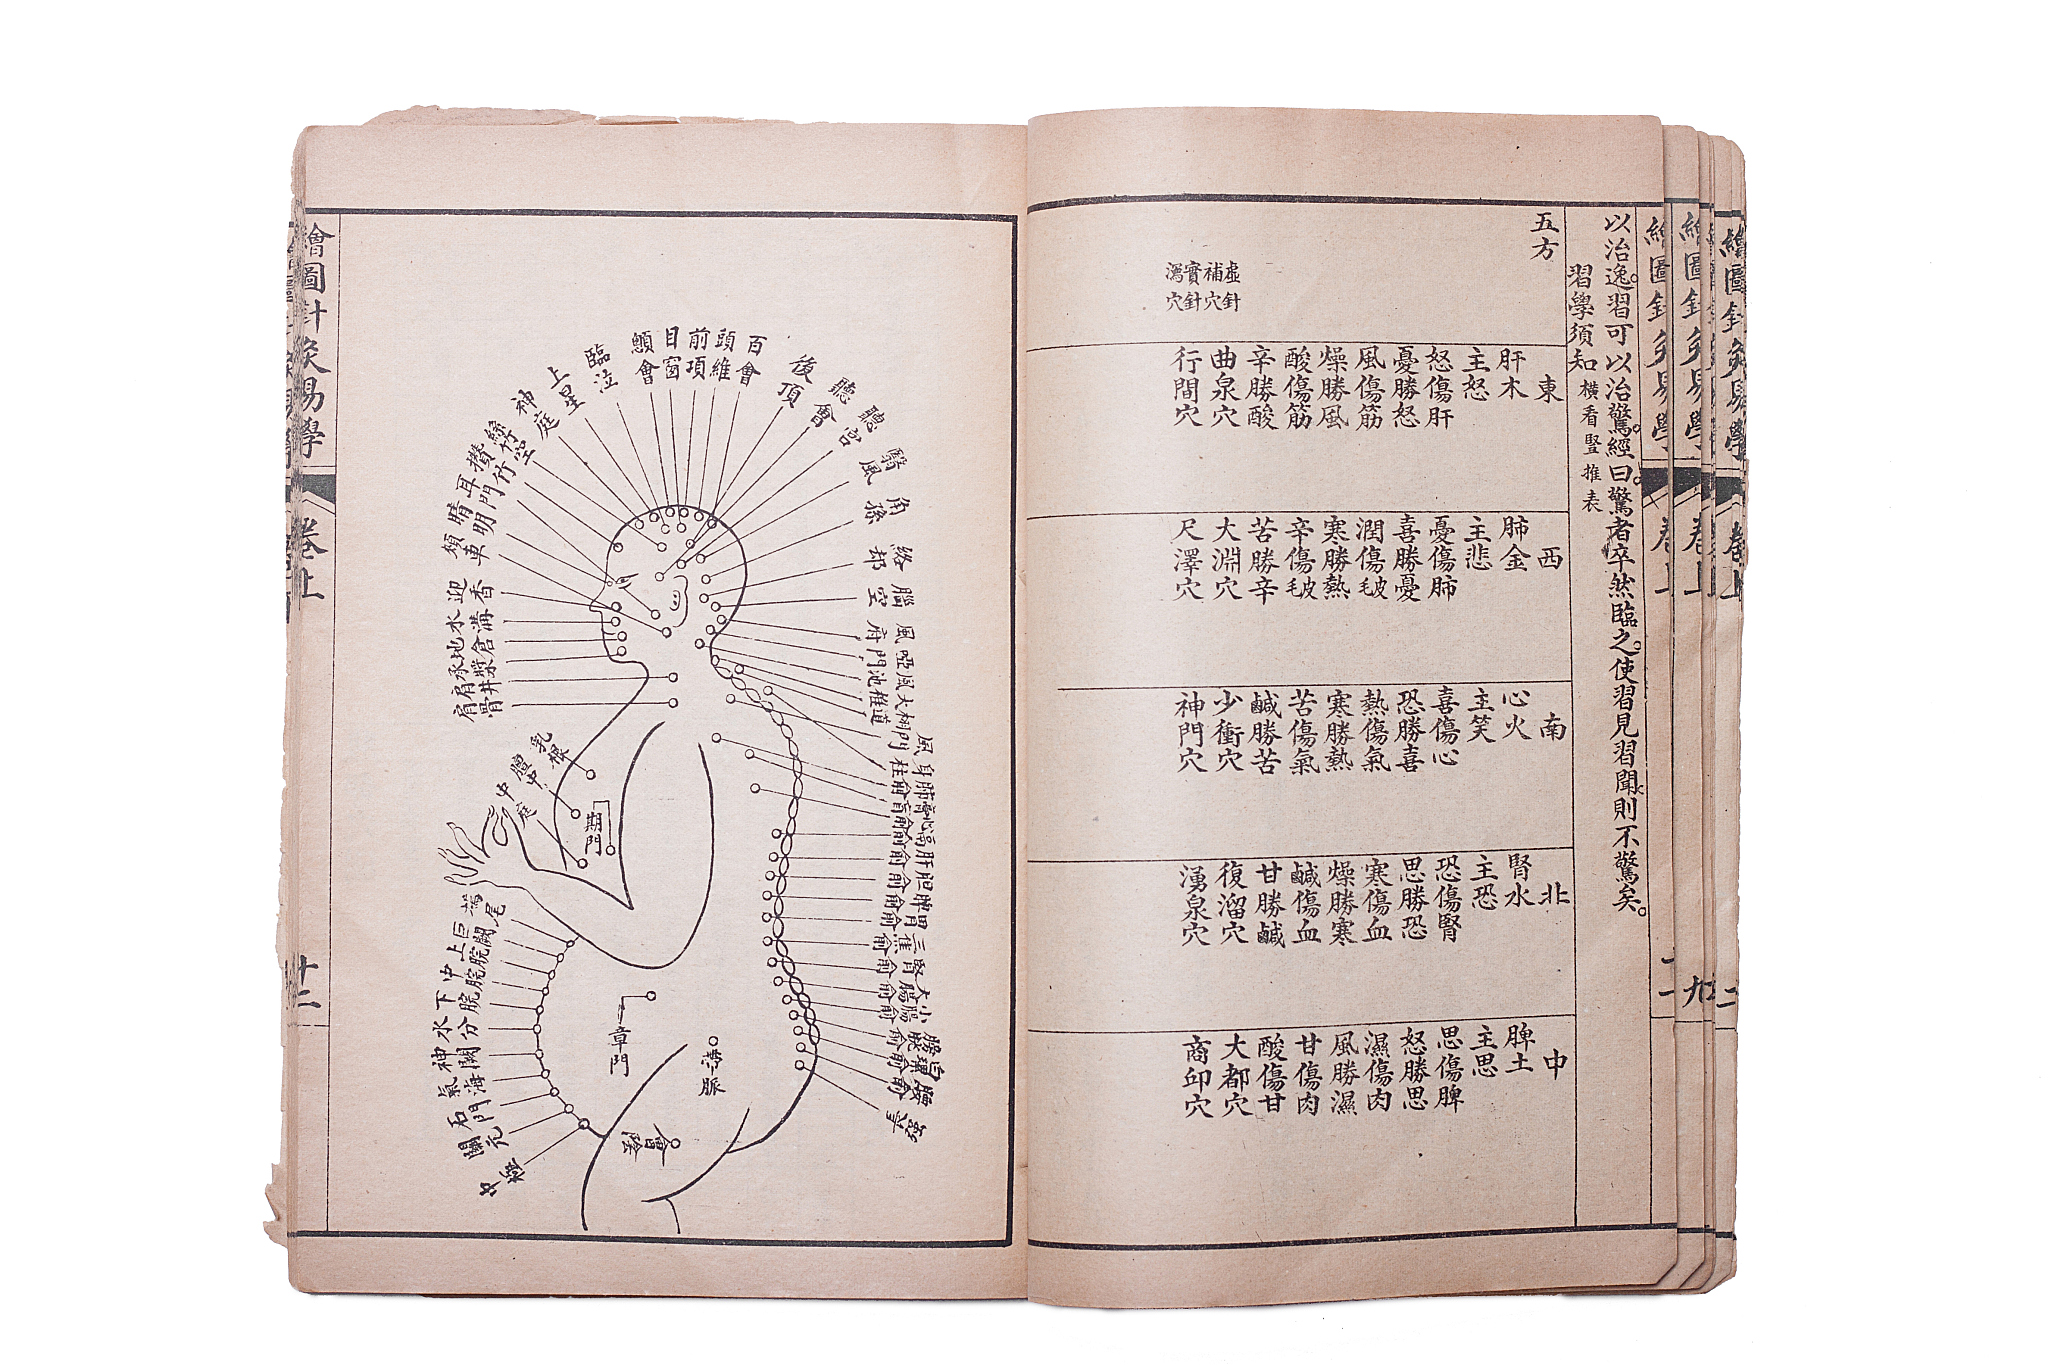 以治逸習可以治驚經曰驚者卒然臨之使習見習聞則不驚矣
習學須知橫看豎推表
五方
虛針
補穴
實針
瀉穴
東
肝木
主怒
怒傷肝
憂勝怒
風傷筋
燥勝風
酸傷筋
辛勝酸
曲泉穴
行間穴
西
肺金
主悲
憂傷肺
喜勝憂
潤傷毛皮
寒勝熱
辛傷毛皮
苦勝辛
大淵穴
尺澤穴
南
心火
主笑
喜傷心
恐勝喜
熱傷氣
寒勝熱
苦傷氣
鹹勝苦
少衝穴
神門穴
北
腎水
主恐
恐傷腎
思勝恐
寒傷血
燥勝寒
鹹傷血
甘勝鹹
復溜穴
湧泉穴
中
脾土
主思
思傷脾
怒勝思
濕傷肉
風勝濕
甘傷肉
酸傷甘
大都穴
商卬穴
繪圖針灸易學
卷上
九
繪圖針灸易學
卷上
十二
聽宮
聽會
後頂
百會
頭維
前項
目窗
顖會
臨泣
上星
神庭
絲竹空
攢竹
耳門
睛明
頰車
迎香
水溝
地倉
承漿
肩井
肩髃
翳風
角孫
絡却
腦空
風府
啞門
風池
大椎
陶道
風門
身柱
肺俞
膏肓俞
心俞
膈俞
肝俞
胆俞
脾俞
胃俞
三焦俞
腎俞
大腸俞
小腸俞
膀胱俞
乳根
膻中
中庭
期門
鳩尾
巨闕
上脘
中脘
下脘
水分
神闕
氣海
石門
關元
章門
會陰